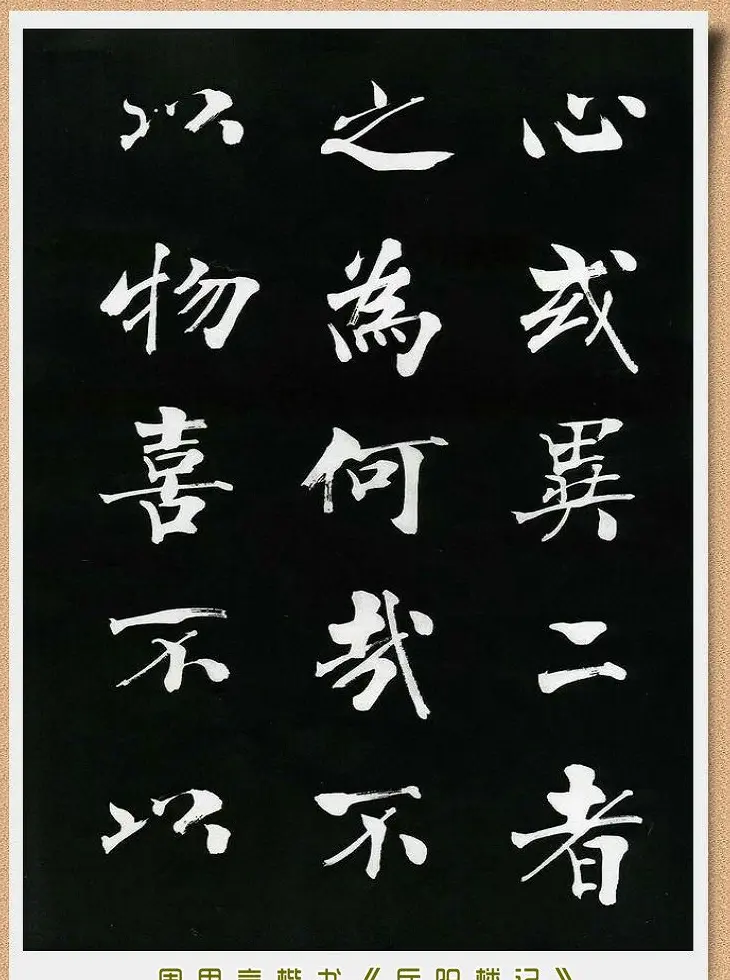 心或異二者
之為何哉不
以物喜不以
周思言楷书《岳阳楼记》